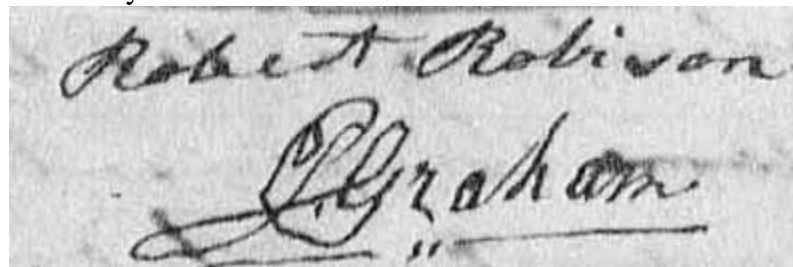 Robert Robison
Graham